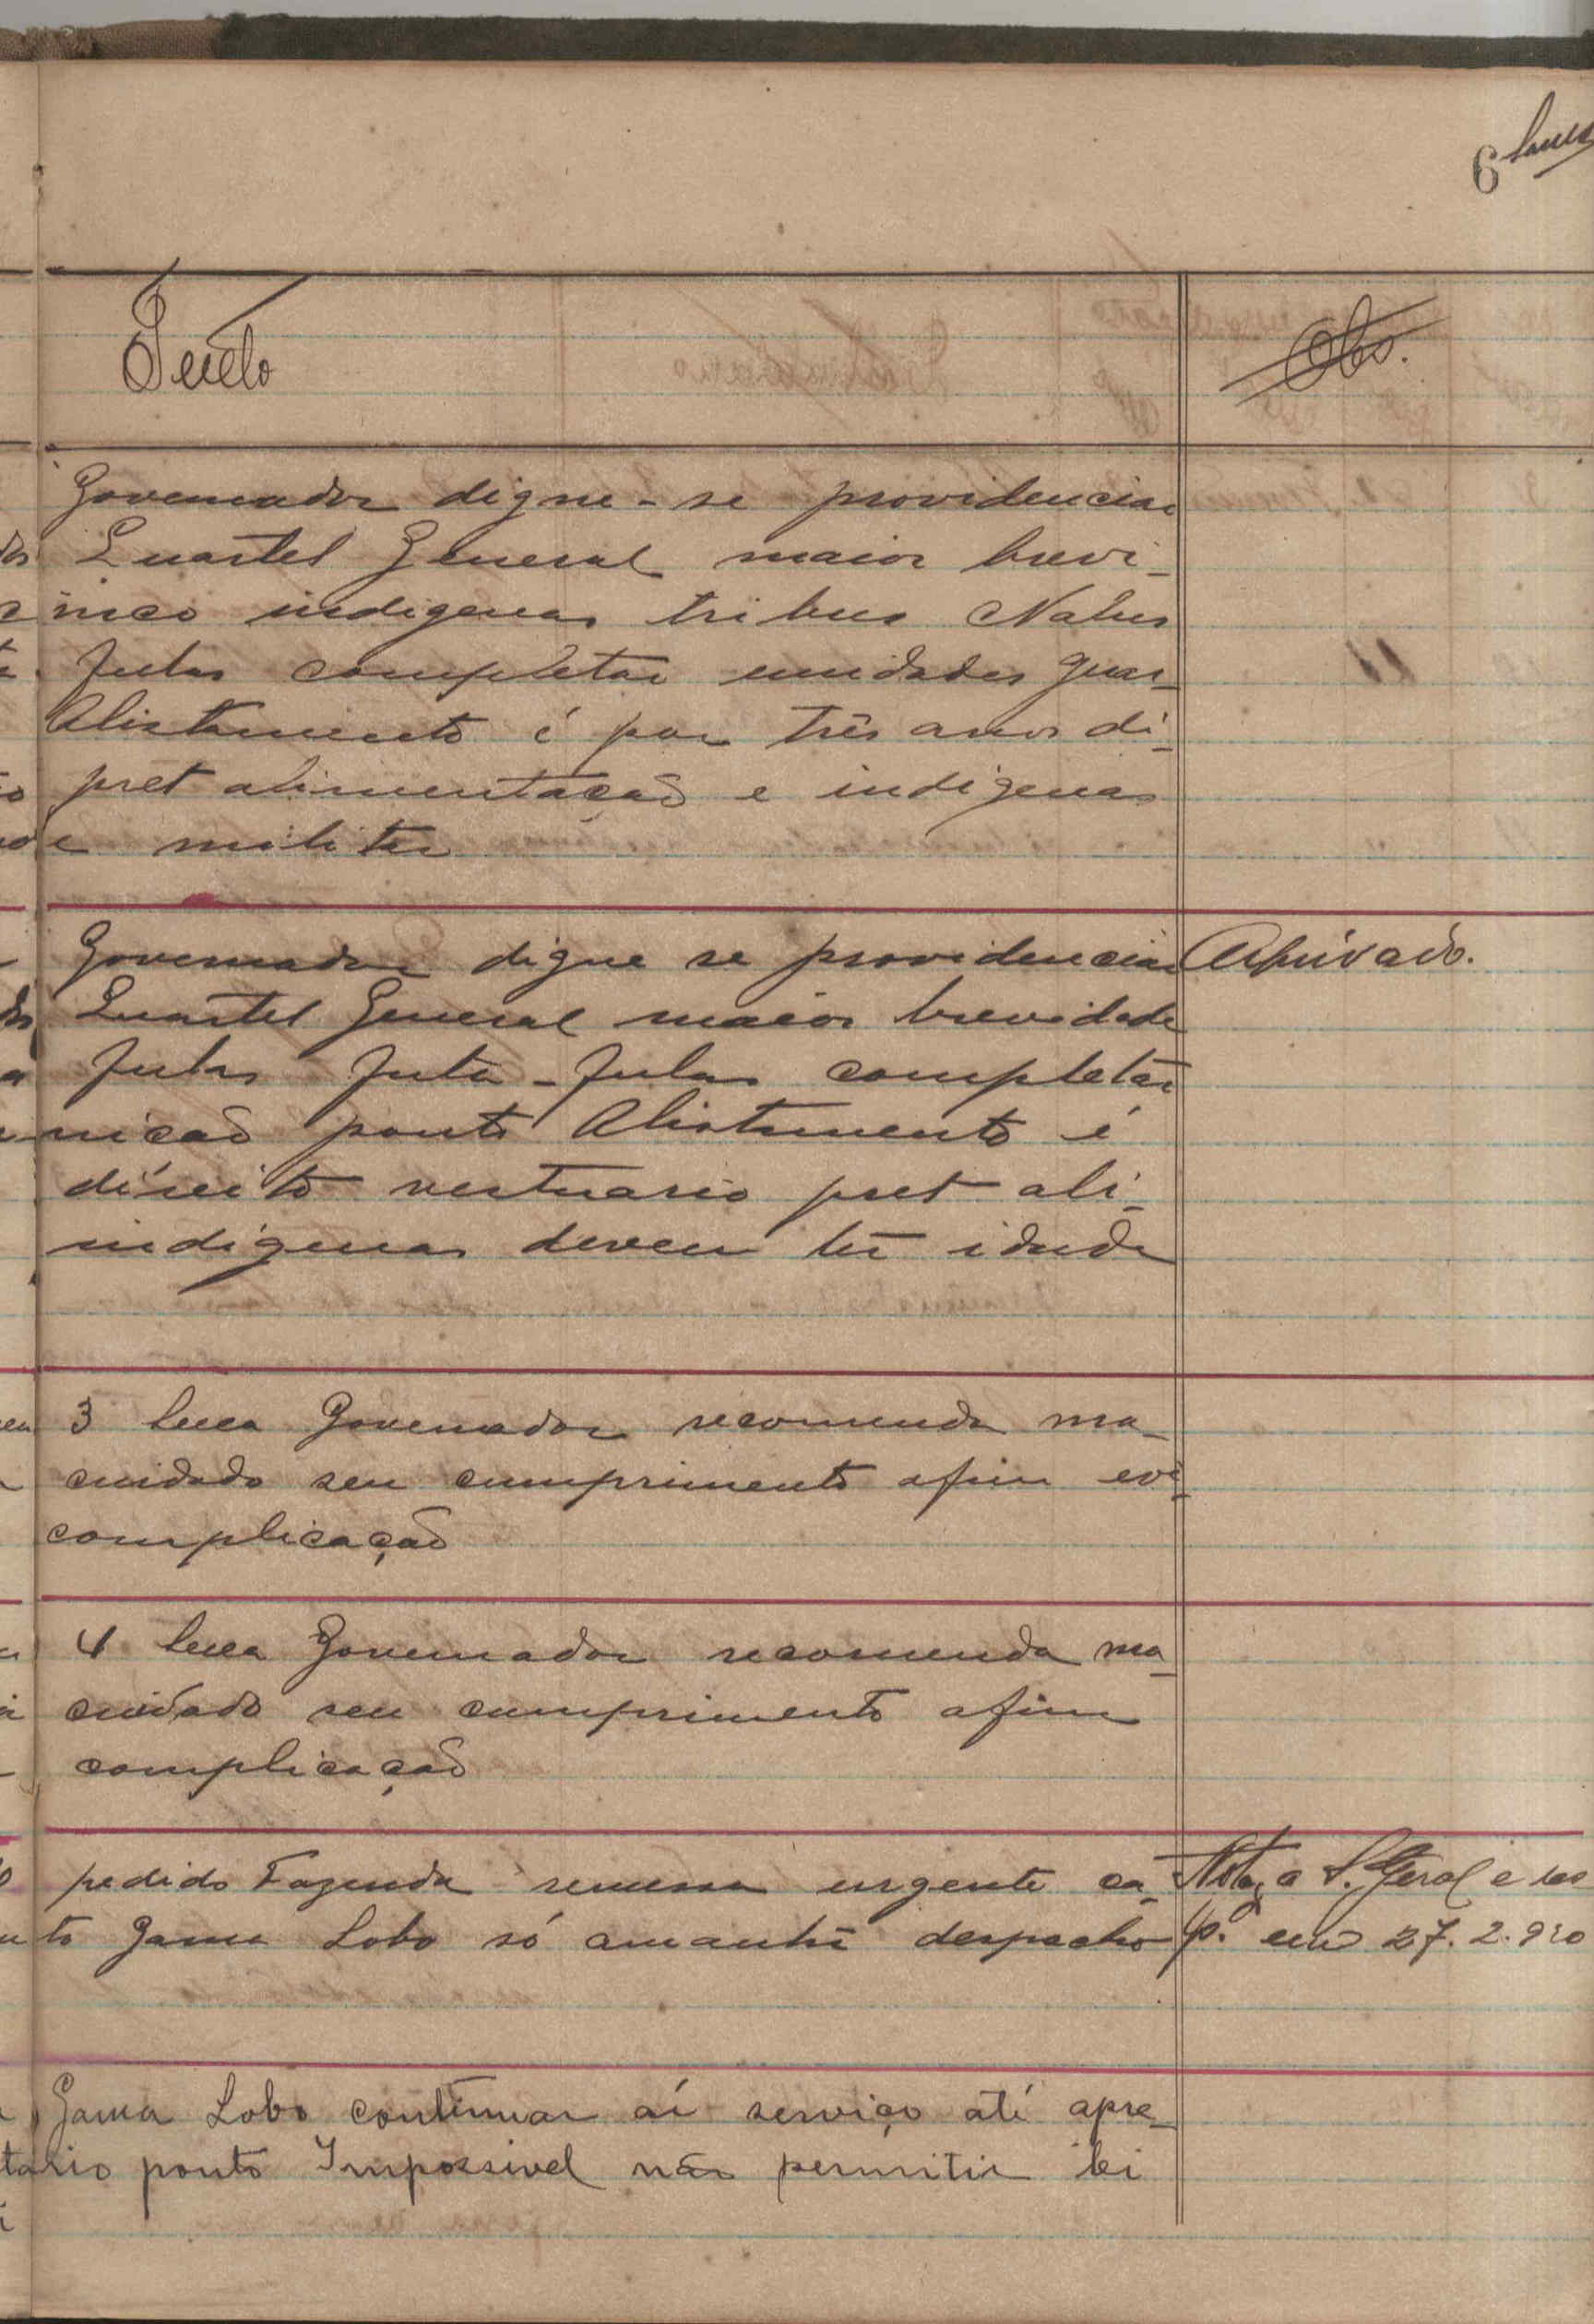 6
Texto
Obs.
Governador digne-se providenciar
Quartel General maior brevi-
inco indigenas tribus Nalus
Fulas completar unidades guar-
Alistamento é por três anos di-
pret alimentação e indigenas
militar
Governador digne se providenciar
Arquivado.
Quartel General maior brevidade
Fulas Futa-Fulas completar
nição ponto Alistamento é
direito vestuario pret ali-
indigenas devem ter idade
3 Governador recomenda ma-
cuidado seu cumprimento afim evi-
complicação
4 Governador recomenda ma-
cuidado seu cumprimento afim
complicação
pedido Fazenda remessa urgente ca-
Nota a S. Geral e
to Gama Lobo só amanhã despacho
em 27.2.920
Gama Lobo continuar aí serviço até apre-
tario ponto Impossivel não permitir lei